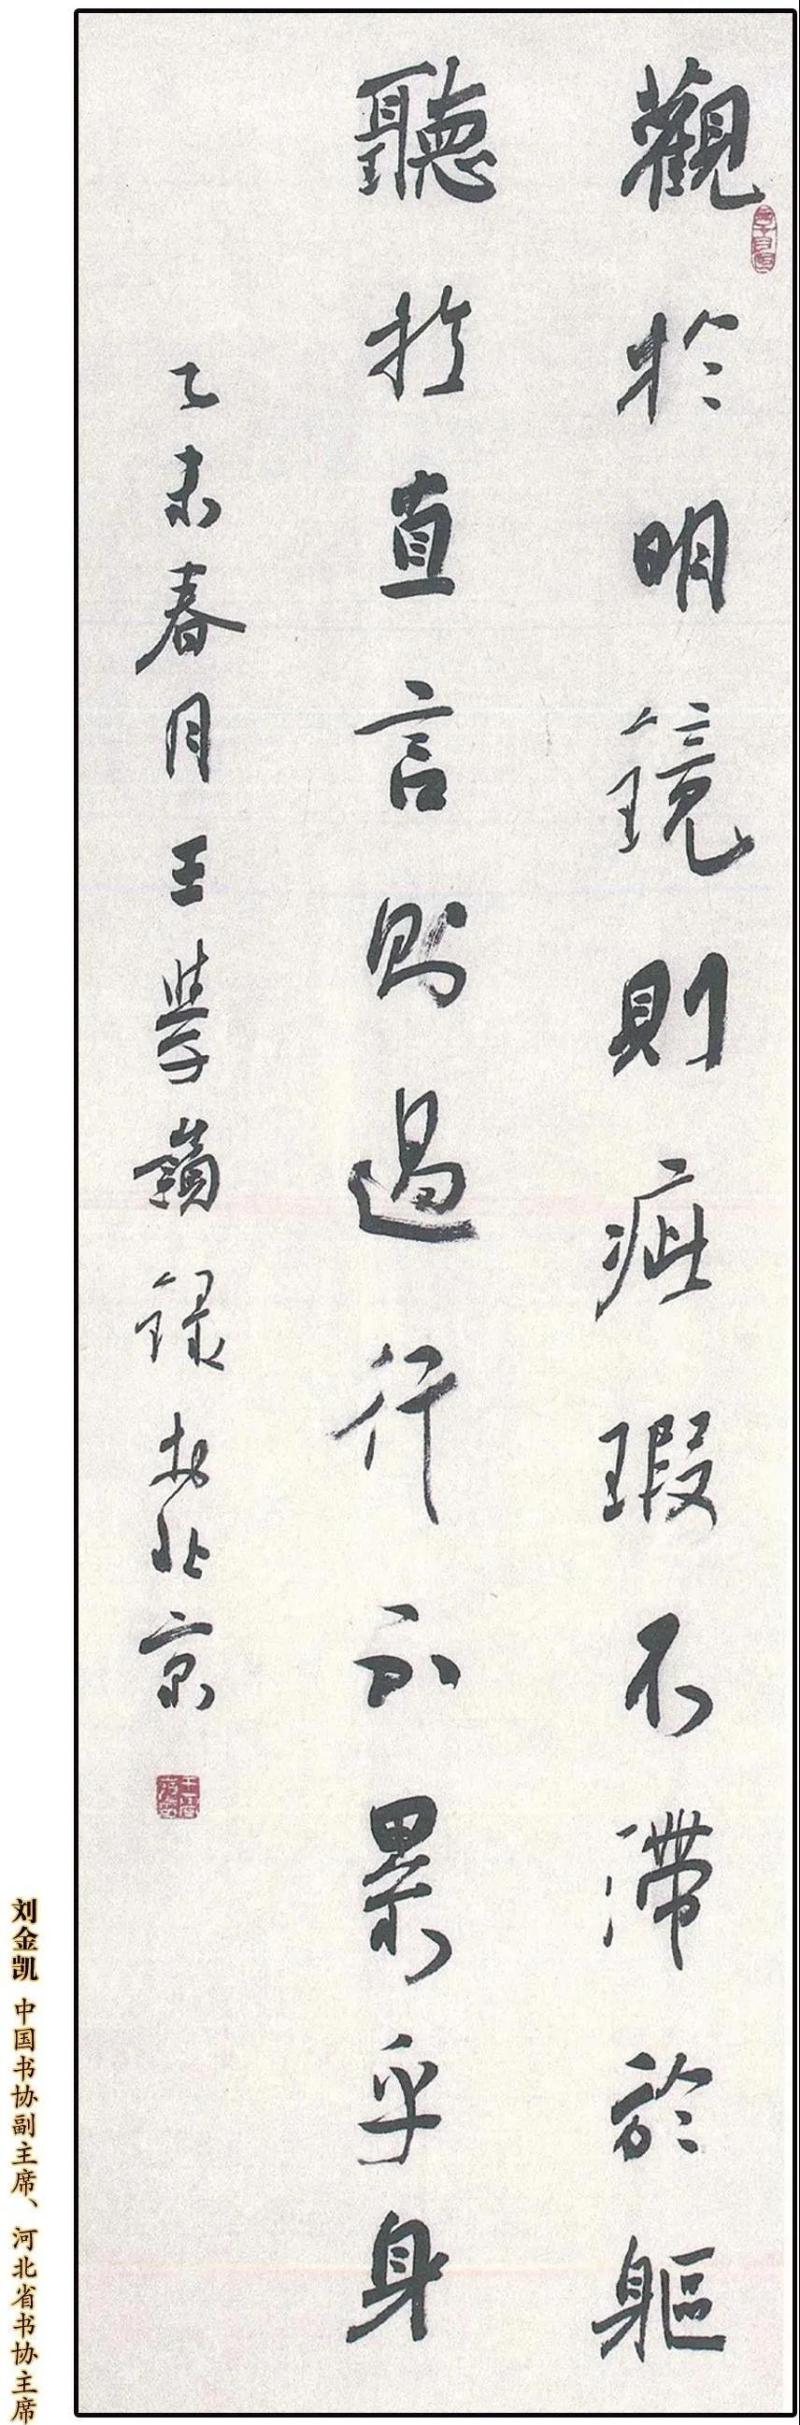 觀於明鏡則疵瑕不滯於軀
聽於直言則過行不累乎身
乙未春月王學嶺錄於北京
刘金凯 中国书协副主席、河北省书协主席